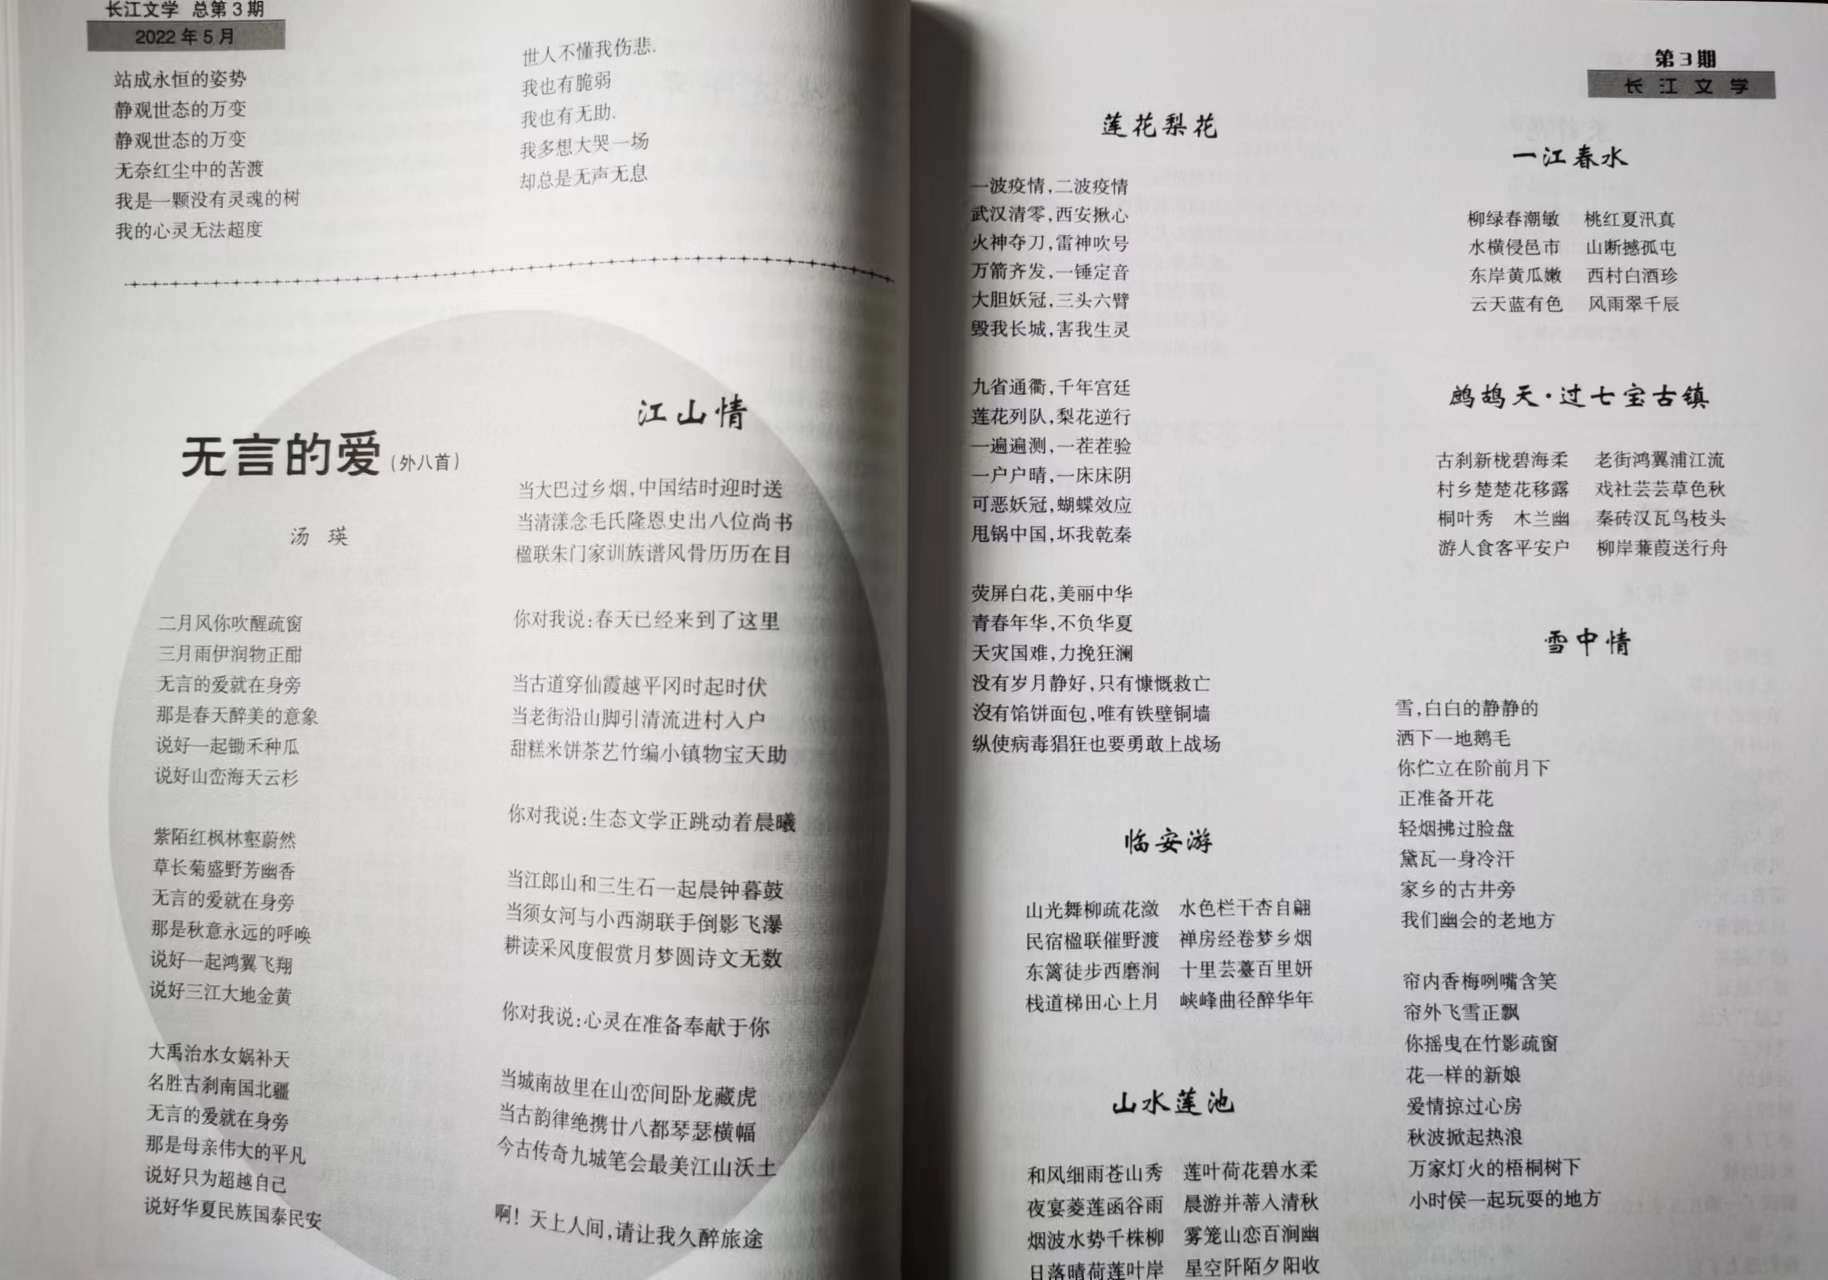 长江文学 总第3期
2022年5月
站成永恒的姿势
静观世态的万变
静观世态的万变
无奈红尘中的苦渡
我是一颗没有灵魂的树
我的心灵无法超度
世人不懂我伤悲.
我也有脆弱
我也有无助.
我多想大哭一场
却总是无声无息
无言的爱(外八首)
汤 瑛
二月风你吹醒疏窗
三月雨伊润物正酣
无言的爱就在身旁
那是春天醉美的意象
说好一起锄禾种瓜
说好山峦海天云杉
紫陌红枫林壑蔚然
草长菊盛野芳幽香
无言的爱就在身旁
那是秋意永远的呼唤
说好一起鸿翼飞翔
说好三江大地金黄
大禹治水女娲补天
名胜古刹南国北疆
无言的爱就在身旁
那是母亲伟大的平凡
说好只为超越自己
说好华夏民族国泰民安
江山情
当大巴过乡烟,中国结时迎时送
当清漾念毛氏隆恩史出八位尚书
楹联朱门家训族谱风骨历历在目
你对我说:春天已经来到了这里
当古道穿仙霞越平冈时起时伏
当老街沿山脚引清流进村入户
甜糕米饼茶艺竹编小镇物宝天助
你对我说:生态文学正跳动着晨曦
当江郎山和三生石一起晨钟暮鼓
当须女河与小西湖联手倒影飞瀑
耕读采风度假赏月梦圆诗文无数
你对我说:心灵在准备奉献于你
当城南故里在山峦间卧龙藏虎
当古韵律绝携廿八都琴瑟横幅
今古传奇九城笔会最美江山沃土
啊! 天上人间,请让我久醉旅途
第3期
长江文学
莲花梨花
一波疫情,二波疫情
武汉清零,西安揪心
火神夺刀,雷神吹号
万箭齐发,一锤定音
大胆妖冠,三头六臂
毁我长城,害我生灵
九省通衢,千年宫廷
莲花列队,梨花逆行
一遍遍测,一茬茬验
一户户晴,一床床阴
可恶妖冠,蝴蝶效应
甩锅中国,坏我乾秦
荧屏白花,美丽中华
青春年华,不负华夏
天灾国难,力挽狂澜
没有岁月静好,只有慷慨救亡
没有馅饼面包,唯有铁壁铜墙
纵使病毒猖狂也要勇敢上战场
临安游
山光舞柳疏花潋 水色栏干杏自翩
民宿楹联催野渡 禅房经卷梦乡烟
东篱徒步西磨涧 十里芸薹百里妍
栈道梯田心上月 峡峰曲径醉华年
山水莲池
和风细雨苍山秀 莲叶荷花碧水柔
夜宴菱莲函谷雨 晨游并蒂入清秋
烟波水势千株柳 雾笼山恋百涧幽
日落晴荷莲叶岸 星空阡陌夕阳收
一江春水
柳绿春潮敏 桃红夏汛真
水横侵邑市 山断撼孤屯
东岸黄瓜嫩 西村白酒珍
云天蓝有色 风雨翠千辰
鹧鸪天·过七宝古镇
古刹新栊碧海柔 老街鸿翼浦江流
村乡楚楚花移露 戏社芸芸草色秋
桐叶秀 木兰幽 秦砖汉瓦鸟枝头
游人食客平安户 柳岸蒹葭送行舟
雪中情
雪,白白的静静的
洒下一地鹅毛
你伫立在阶前月下
正准备开花
轻烟拂过脸盘
黛瓦一身冷汗
家乡的古井旁
我们幽会的老地方
帘内香梅咧嘴含笑
帘外飞雪正飘
你摇曳在竹影疏窗
花一样的新娘
爱情掠过心房
秋波掀起热浪
万家灯火的梧桐树下
小时侯一起玩耍的地方